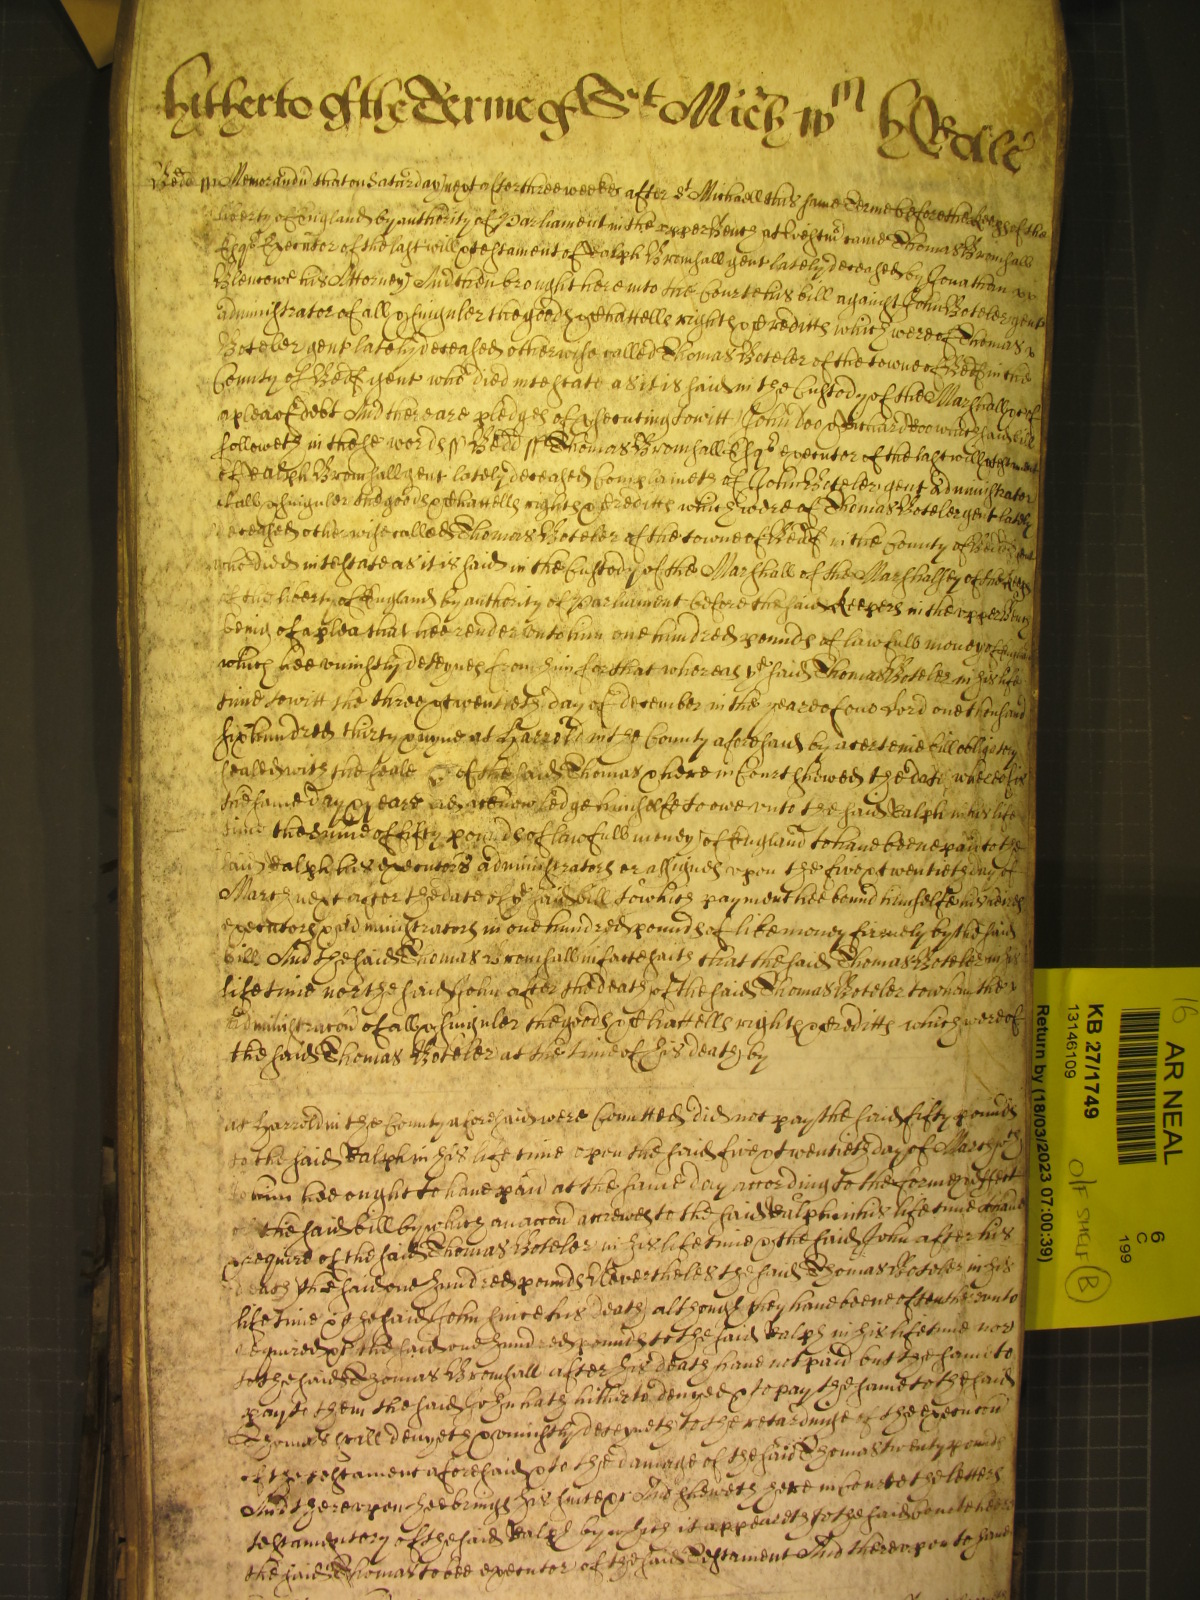 hitherto of the Terme of St Mich wm h Rolle
Bedd ss Memorandu that on Saturday next after three weekes after st Michaell this same Terme before the keeps of the
liberty of England by authority of Parliament in the upper Bench at Westmr came Thomas Bromhall
Esqr Executor of the last will & testament of Ralph Bromhall gent lately deceased by Jonathan
Blencowe his Attorney And then brought here into the Court his bill against John Boteler gent
administrator of all & singuler the goods & Chattells rights & Creditts which were of Thomas
Boteler gent lately deceased otherwise called Thomas Boteler of the towne of Bedf in the
County of Bedf gent who died intestate as it is said in the Custody of the Marshall &c of
a plea of debt And there are pledges of prosecuting to witt John Doo & Richard Roo which said bill
followeth in these words ss Bedd ss Thomas Bromhall Esqr executor of the last will & testament
of Ralph Bromhall gent lately deceased Complaineth of John Boteler gent administrator
of all & singuler the goods & Chattells rights & Creditts which were of Thomas Boteler gent lately
deceased otherwise called Thomas Boteler of the towne of Bedf in the County of Bedd gent
who died intestate as it is said in the Custody of the Marshall of the Marshalsey of the keeps
of the liberty of England by authority of Parliament before the said keepers in the upper Bench
being of a plea that hee render unto him one hundred pounds of lawfull money of England
which hee uniustly deteynes from him for that whereas ye said Thomas Boteler in his life
time to witt the three & twentieth day of december in the yeare of our Lord one thousand
six hundred thirty & nyne at Harrold in the County aforesaid by a certeine bill obligatory
sealed with the seale of the said Thomas & here in Court shewed the date whereof is
the same day & yeare did acknowledge himselfe to owe unto the said Ralph in his life
time the summe of fifty pounds of lawfull money of England to have beene paid to the
said Ralph his executors administrators or assignes upon the five & twentieth day of
March next after the date of ye said bill to which payment hee bound himselfe his heires
executors & administrators in one hundred pounds of like money firmely by the said
bill And the said Thomas Bromhall in facte saith that the said Thomas Boteler in his
life time nor the said John after the death of the said Thomas Boteler to whom the
administracon of all & singuler the goods & Chattells rights & Creditts which were of
the said Thomas Boteler at the time of his death by
at Harrold in the County aforesaid were Comitted did not pay the said fifty pounds
to the said Ralph in his life time upon the said five & twentieth day of March wch
to him hee ought to have paid at the same day according to the forme & effect
of the said bill by which an accon accrewed to the said Ralph in his life time to have
& require of the said Thomas Boteler in his life time & the said John after his
death the said one hundred pounds Neverthelesse the said Thomas Boteler in his
life time & the said John since his death although they have beene often thereunto
required the said one hundred pounds to the said Ralph in his life time nor
to the said Thomas Bromhall after his death have not paid but the same to
pay to them the said John hath hitherto denyed & to pay the same to the said
Thomas still denyeth & uniustly deteyneth to the retardinge of the execucon
of the testament aforesaid & to the damage of the said Thomas twenty pounds
And thereupon hee brings his suite &c And sheweth here in Courte the letters
testamentory of the said Ralph by which it appeareth to the said Courte here
the said Thomas to bee executor of the said Testament And thereupon to have
16
AR NEAL
6
C
199
KB 27/1749
13146109
O/F SHELF B
Return by (18/03/2023 07:00:39)